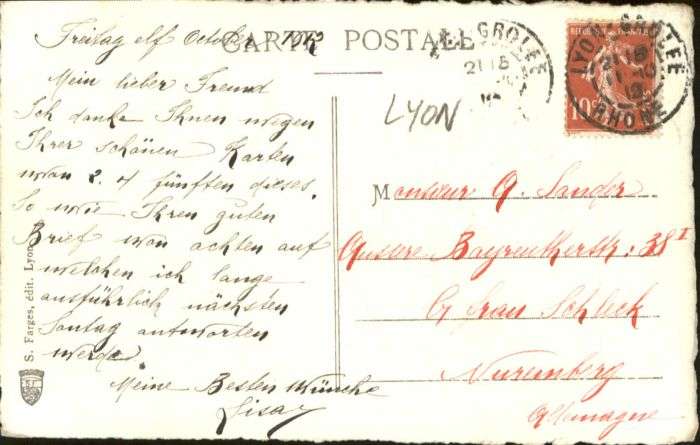 Freitag elf October 1912
CARTE POSTALE
Mein lieber Freund
Ich danke Ihnen wegen
Ihrer schönen Karten
von 2. & fünften dieses.
So wie Ihren guten
Brief von achten auf
welchen ich lange
ausführlich nächsten
Sontag antworten
werde.
Meine Besten Wünche
Lisa
S. Farges, édit. Lyon
LYON
GROLÉE
21 15
LYON-GROLÉE
RHÔNE
10
Monsieur G. Sander
Aussere Bayreutherstr: 38 I
G frau Schleck
Nuremberg
Allemagne